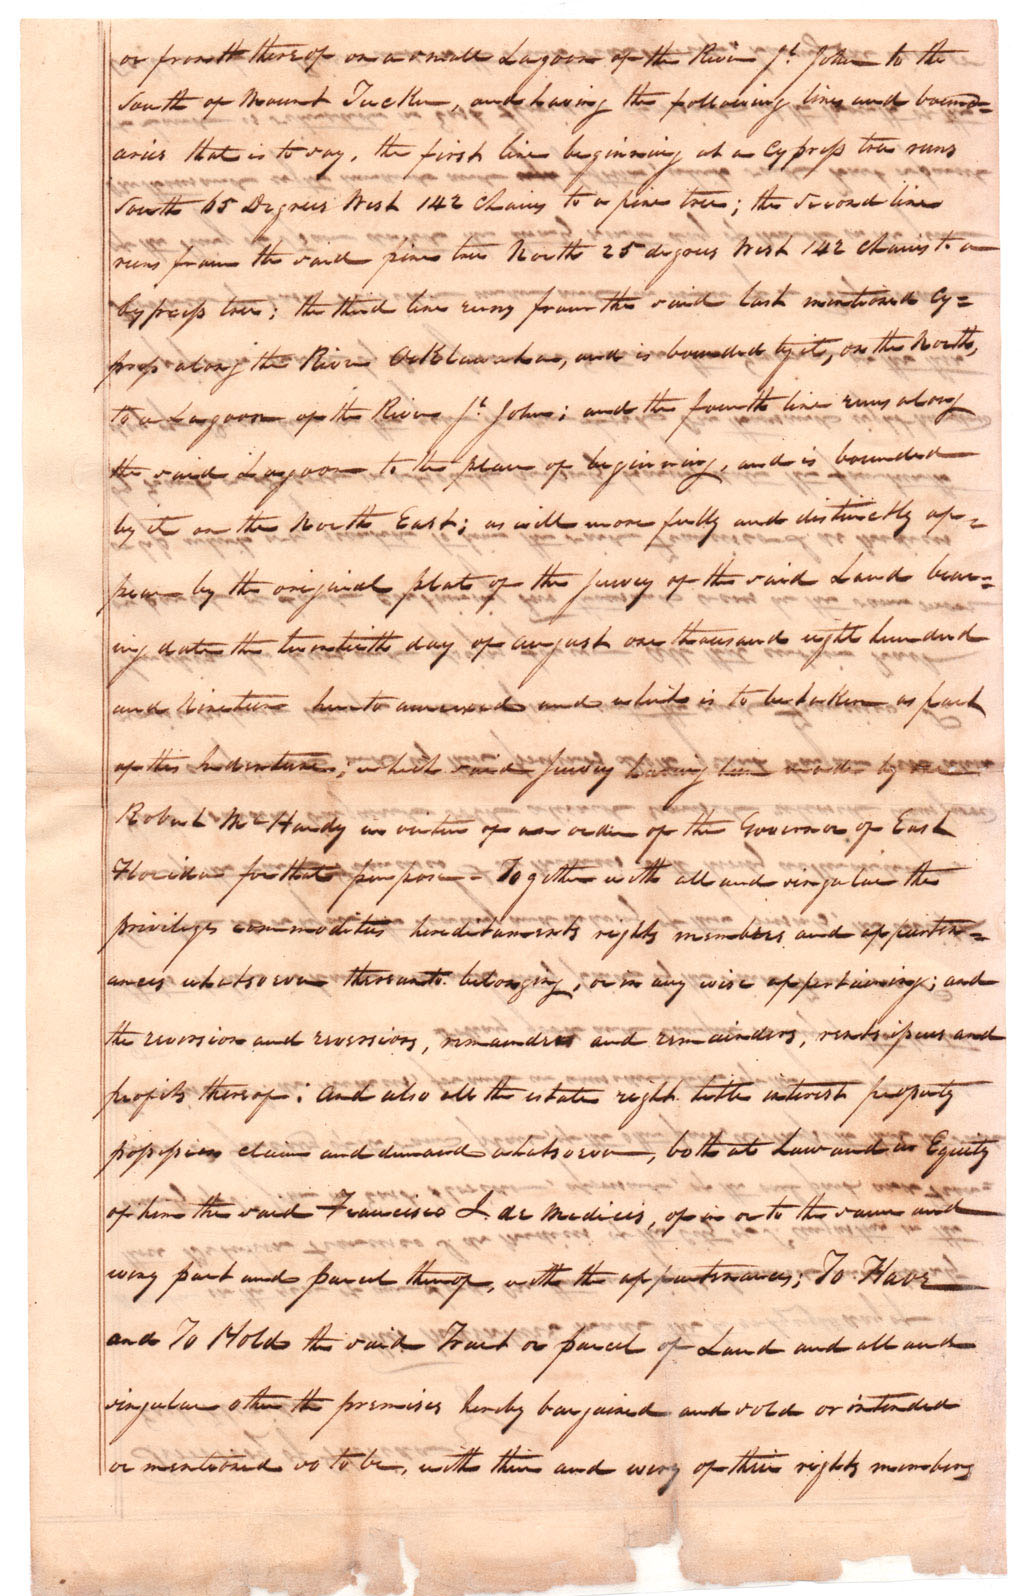 or frontt thereof on a small Lagoon of the River St. John to the
South of Mount Tucker, and having the following lines and bound=
aries that is to say, the first line beginning at a Cypress tree runs
South 65 Degrees West 142 Chains to a pine tree; the second line
runs from the said pine tree North 25 degrees West 142 Chains to a
Cypress tree; the third line runs from the said last mentioned Cy=
press along the River Ocklawaha, and is bounded by it, on the North,
to a Lagoon of the River St. John; and the fourth line runs along
the said Lagoon to the place of beginning, and is bounded
by it on the North East; as will more fully and distinctly ap=
pear by the original plat of the Survey of the said Land bear=
ing date the twentieth day of august one thousand eight hundred
and Nineteen hereto annexed and which is to be taken as part
of this Indenture; which said Survey having been made by
Robert McHardy in virtue of an order of the Governor of East
Florida for that purpose - Together with all and singular the
privileges commodities hereditaments rights members and appurten=
ances whatsoever thereunto belonging, or in any wise appertaining; and
the reversion and reversions, remainder and remainders, rents issues and
profits thereof: And also all the estate right title interest property
possession claim and demand whatsoever, both at Law and in Equity
of him the said Francisco J. de Medicis, of in or to the same and
every part and parcel thereof, with the appurtenances; To Have
and To Hold the said Tract or parcel of Land and all and
singular other the premises hereby bargained and sold or intended
or mentioned so to be, with their and every of their rights members